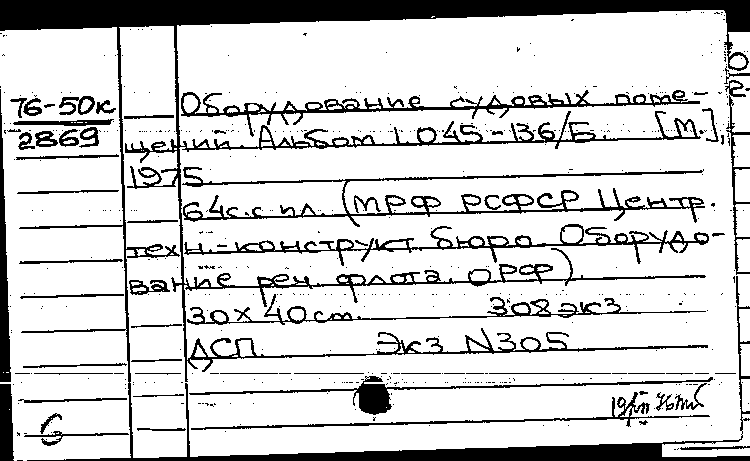 76-50к
2869
Оборудование судовых поме-
щений. Альбом 1.045-136/Б. [М.],
1975
64с.с ил. (МРФ РСФСР Центр.
техн.-конструкт. бюро. Оборудо-
вание реч. флота. ОРФ).
30х40см. 308экз
ДСП. Экз N305
6